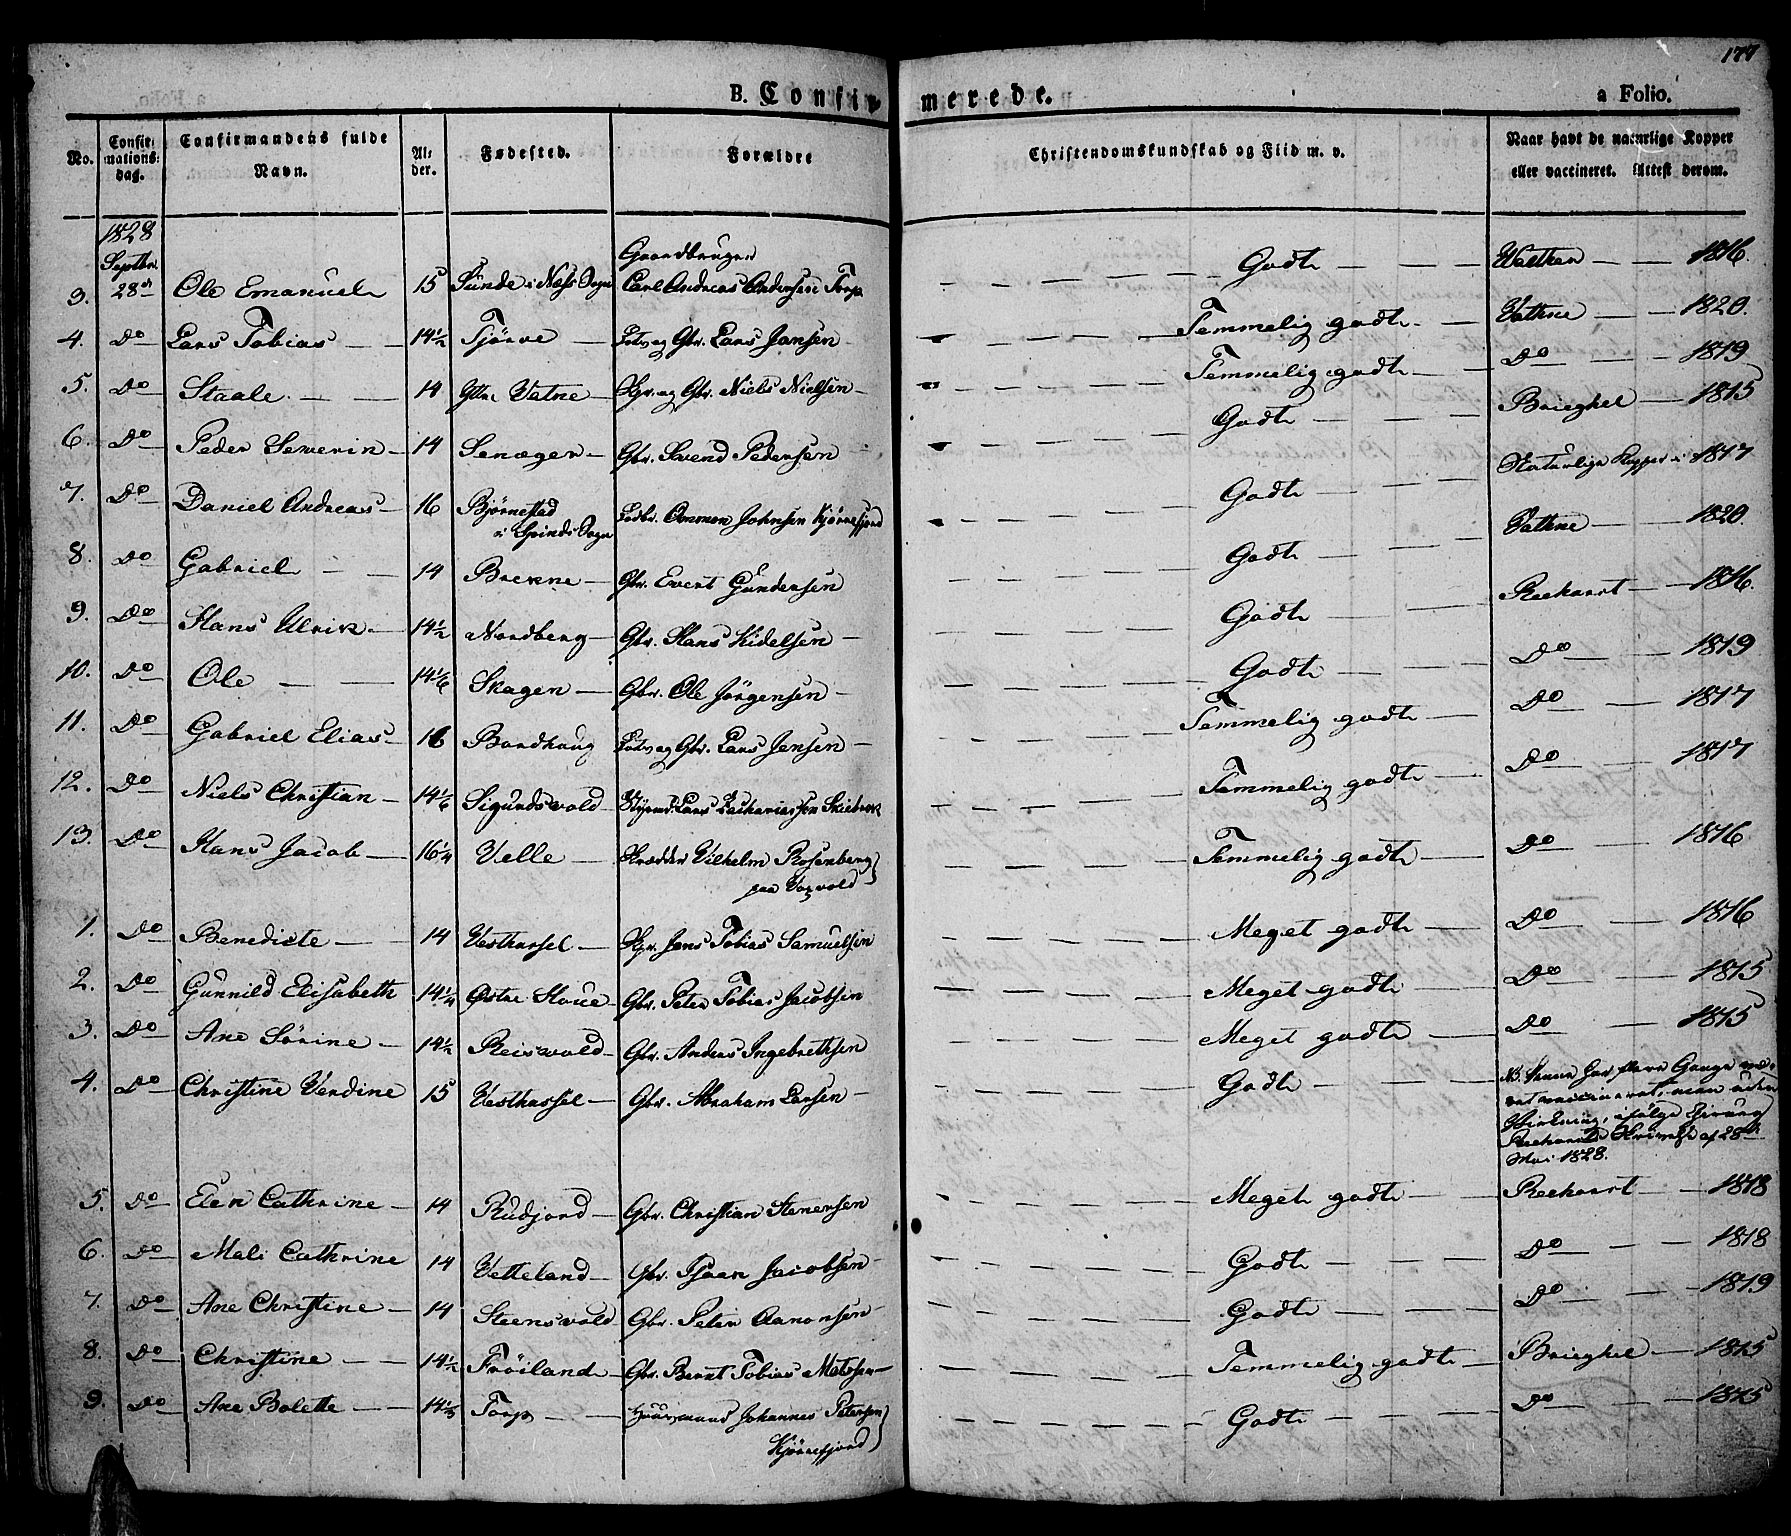 177
B. Confirmerede.
a Folio.
No. Confirmationsdag. Confirmandens fulde Navn. Alder. Fødested. Forældre Christendomskundskab og Flid m. v. Naar havt de naturlige Kopper eller vaccineret. Attest derom.
1828
Septbr. Gaardbruger
3. 28de Ole Emanuel 15 Sunde i Næss Sogn Carl Andreas Andersen Torp — Godt — Walther 1816.
4. Do Lars Tobias — 14½ Tjørve — Lods og Gbr. Lars Jansen — Temmelig godt — Vathne — 1820.
5. Do Staale. — 14 Yttre Vatne — Skpr. og Gbr. Niels Nielsen — Temmelig godt — Do — 1819
6. Do Peder Severin — 14 Senæger — Gbr. Svend Pedersen — Godt — Brieghel — 1815
7. Do Daniel Andreas — 16 Bjørnestad i Spinds Sogn Ammon Johnsen Kjørrefjord — Godt — Naturlige Kopper i 1817
8. Do Gabriel — 14 Brekne — Gbr. Evert Gundersen — Godt — Vathne — 1820.
9. Do Hans Ulrik — 14½ Nordberg — Gbr. Hans Kidelsen — Godt — Reehorst — 1816.
10. Do Ole — 14 1/6 Skagen — Gbr. Ole Jörgensen — Godt — Do — 1819
11. Do Gabriel Elias — 16 Bordhaug Lods og Gbr. Lars Jensen — Temmelig godt — Do — 1817
12. Do Niels Christian — 14 1/6 Sigundsvold — Styrmd. Lars Zachariassen Skiebrek — Temmelig godt — Do — 1817
13. Do Hans Jacob — 16¼ Velle — Skrædder Vilhelm Rosenberg — Temmelig godt — Do — 1816
paa
1. Do Benedicte — 14 Vesthassel — Skpr. Jens Tobias Samuelsen — Meget godt — Do — 1816
2. Do Gunnild Elisabeth 14¼ Østre Houe — Gbr. Peter Tobias Jacobsen — Meget godt — Do — 1815
3. Do Ane Sörine — 14½ Reisvold — Gbr. Anders Ingebrethsen — Meget godt — Do — 1815
4. Do Christine Verdine 15 Vesthassel — Gbr. Abraham Larsen — Godt — NB. Denne har flere Gange været vaccineret, men uden Virkning, ifølge Chirurg Reehorsts Skrivelse af 28de Mai 1828.
5. Do Elen Cathrine — 14 Rudjord — Gbr. Christian Stenersen — Meget godt — Reehorst — 1818
6. Do Mali Cathrine 14 Vetteland — Gbr. Tjøan Jacobsen — Godt — Do — 1818
7. Do Ane Christine — 14 Steensvold Gbr. Peter Aanonsen — Godt — Do — 1819
8. Do Christine — 14½ Fröiland — Gbr. Bernt Tobias Matssen — Temmelig godt — Brieghel — 1815
9. Do Ane Bolette — 14⅓ Torp — Huusmand Johannes Petersen — Godt — Do — 1815
Kjørrefjord